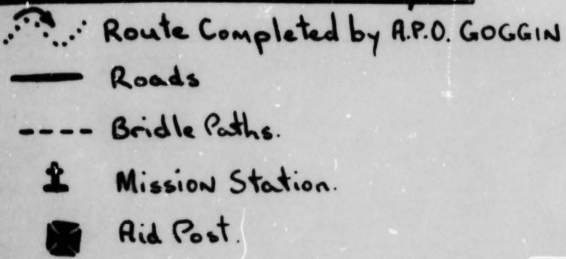 Route Completed by A.P.O. GOGGIN
Roads
Bridle Paths.
Mission Station.
Aid Post.